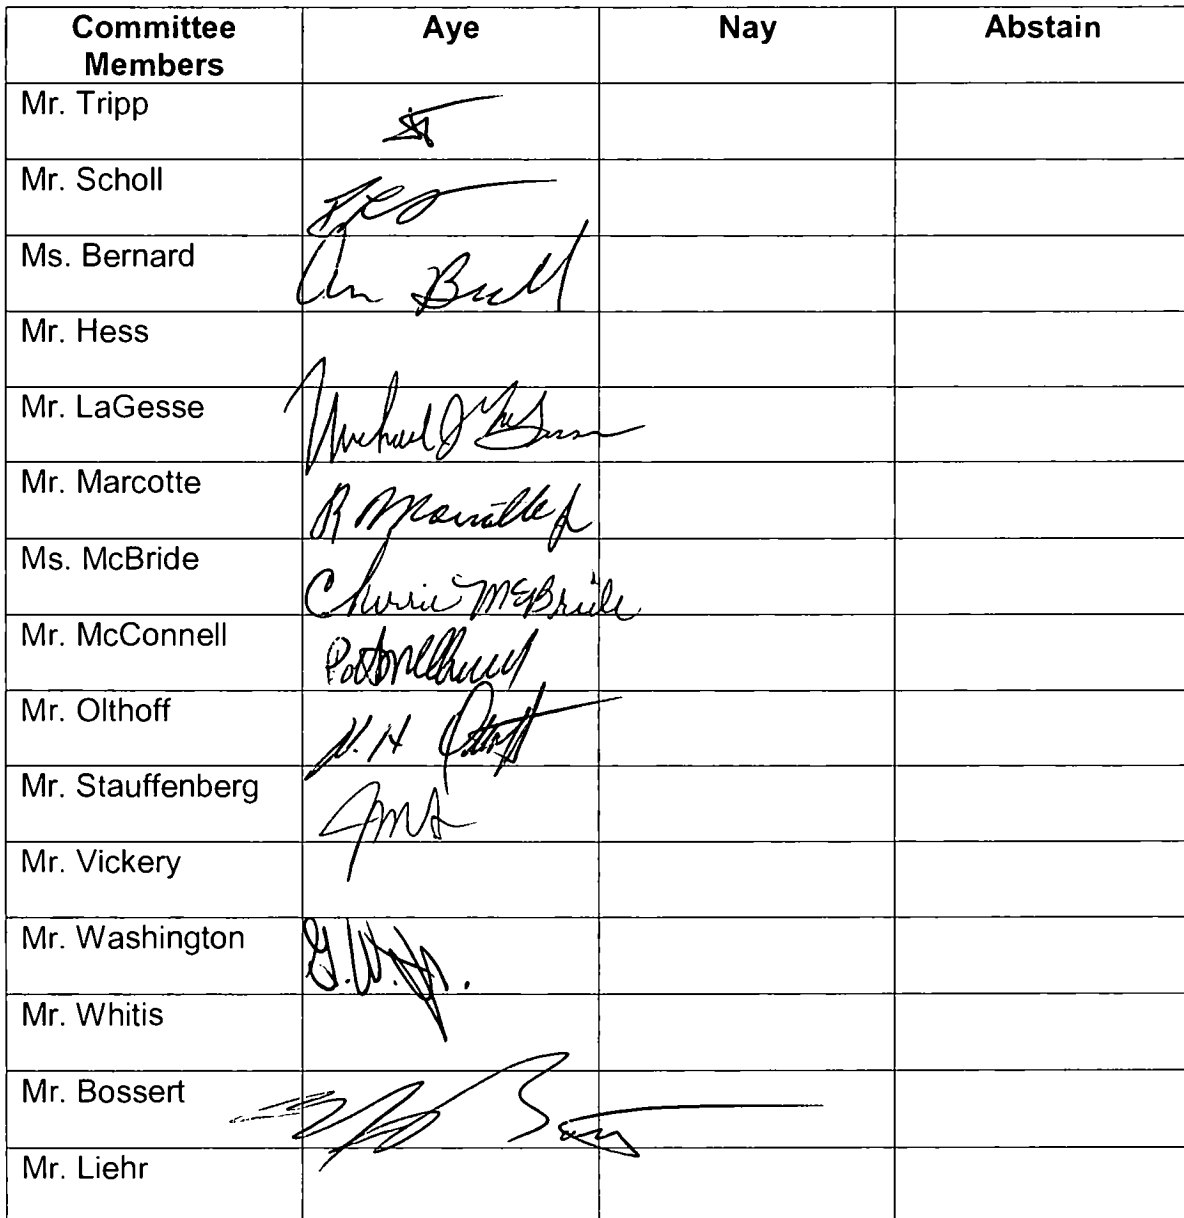 Committee Members Aye Nay Abstain
Mr. Tripp
Mr. Scholl
Ms. Bernard
Mr. Hess
Mr. LaGesse Michael J LaGesse
Mr. Marcotte R Marcotte Jr
Ms. McBride Cherrie McBride
Mr. McConnell
Mr. Olthoff
Mr. Stauffenberg
Mr. Vickery
Mr. Washington G.W. Jr.
Mr. Whitis
Mr. Bossert
Mr. Liehr